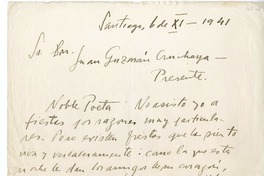 Santiago, 6 de XI - 1941
Sr. Don
Juan Guzmán Cruchaga
Presente.
Noble Poeta: No asisto yo a
fiestas por razones muy particula-
res. Pero existen fiestas que las siento
viva y verdaderamente: como la que esta
noche le dan los amigos de su corazón,